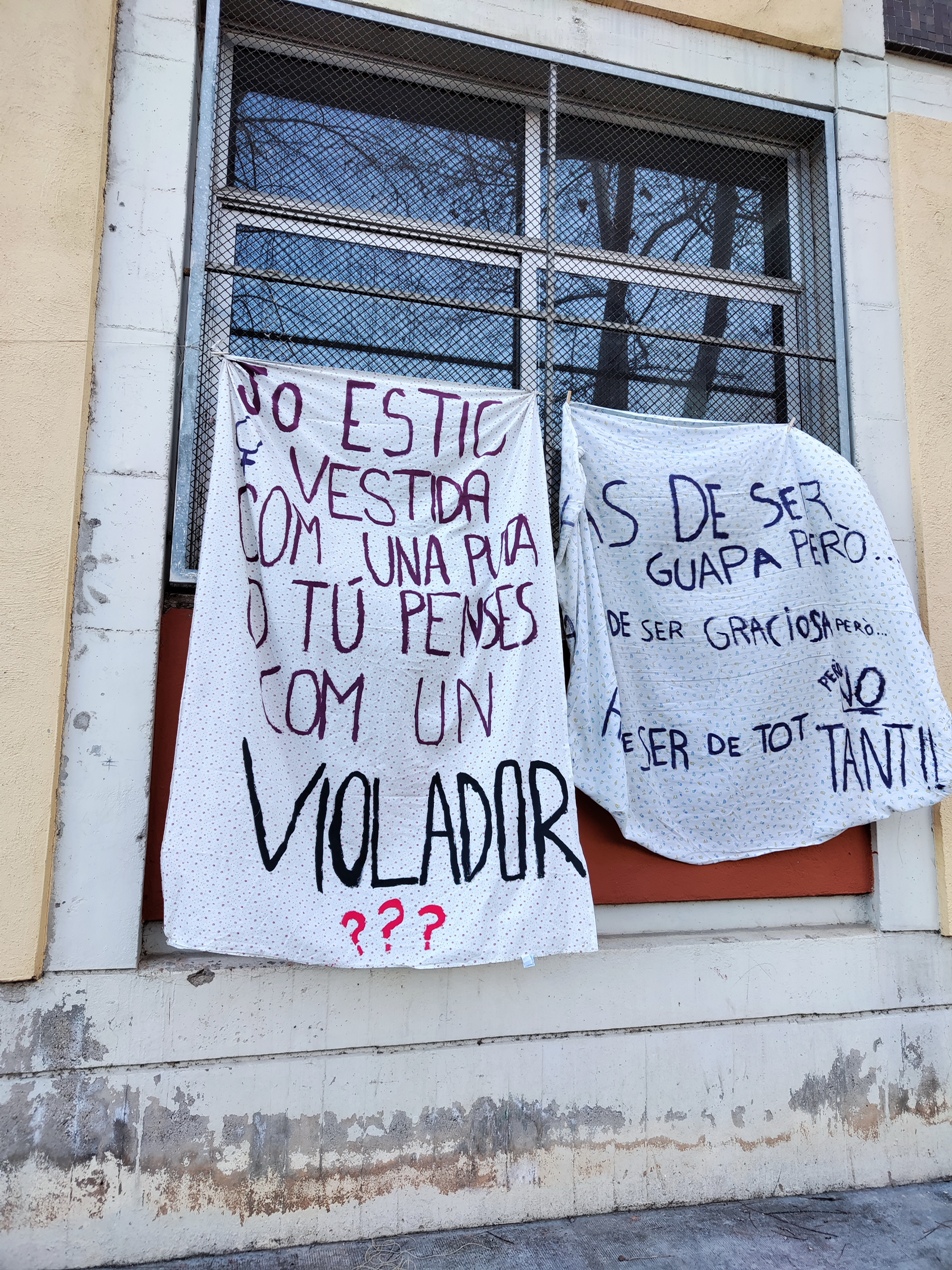 JO ESTIC
VESTIDA
COM UNA PUTA
O TÚ PENSES
COM UN
VIOLADOR
???
DE SER
GUAPA PERÒ...
DE SER GRACIOSA PERÒ...
PERÒ NO
SER DE TOT TANT!!